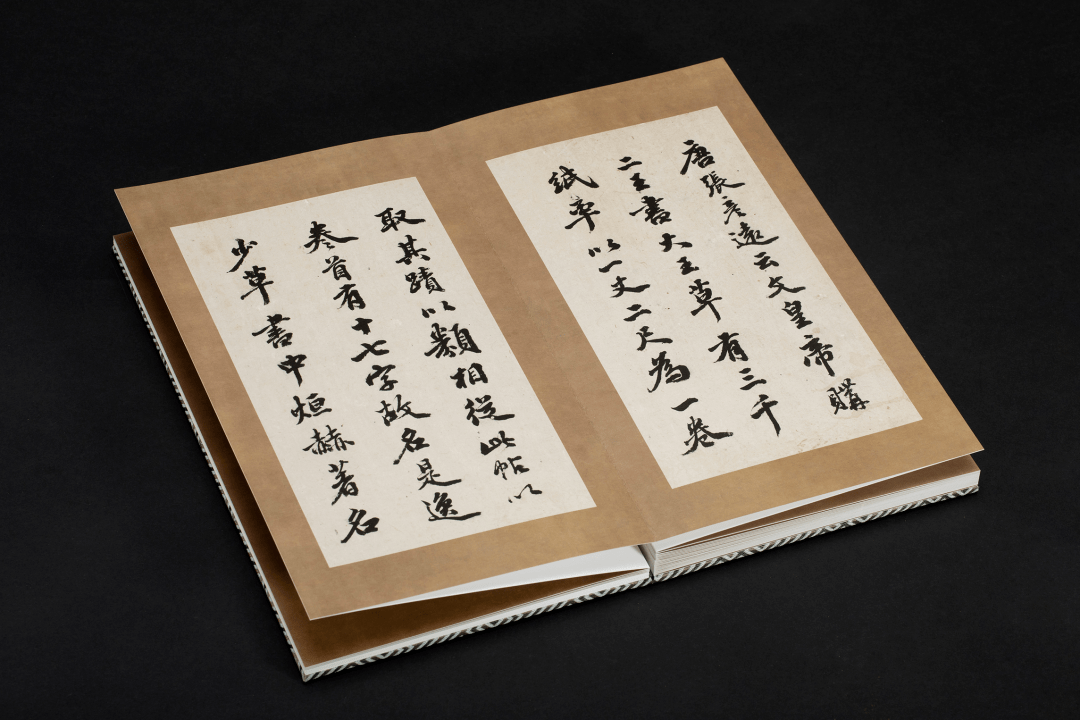 唐張彦遠云文皇帝購
二王書大王草有三千
紙率以一丈二尺為一卷
取其蹟以類相從此帖以
卷首有十七字故名是逸
少草書中烜赫著名